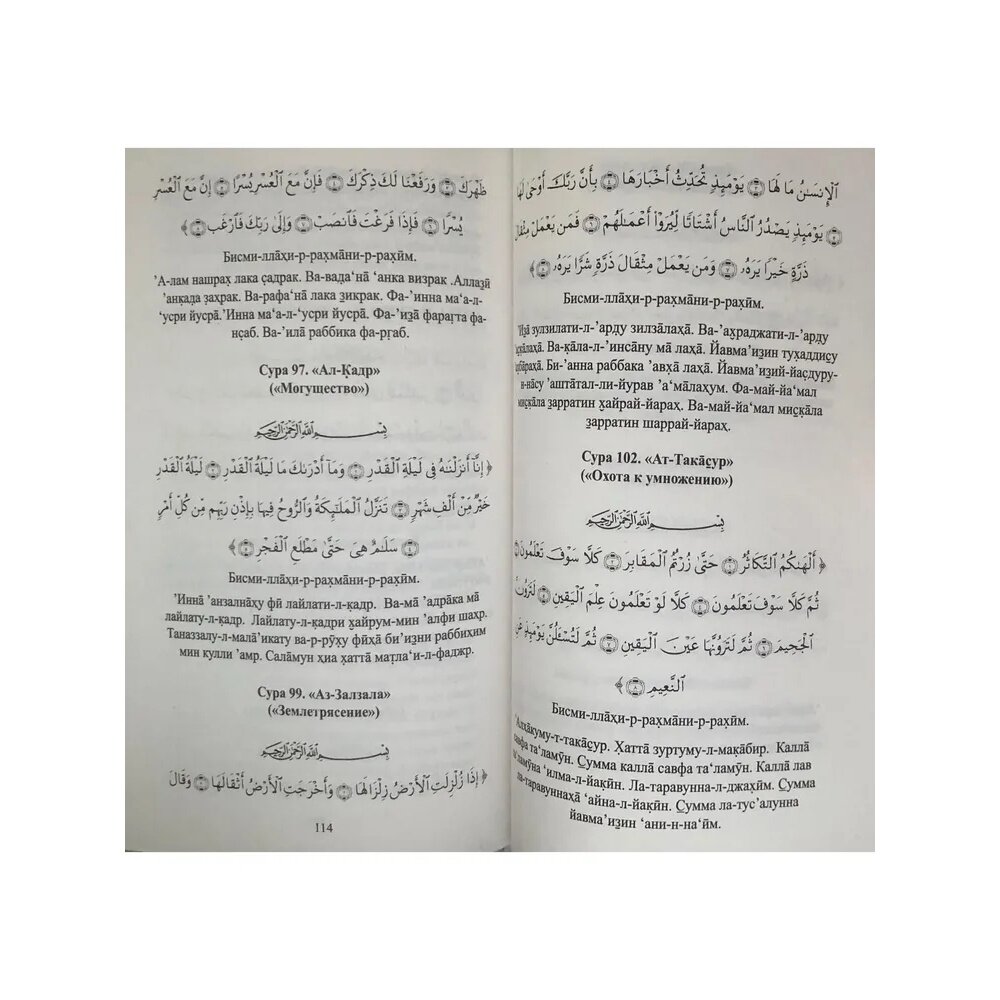 ظَهْرَكَ ۝٣ وَرَفَعْنَا لَكَ ذِكْرَكَ ۝٤ فَإِنَّ مَعَ ٱلْعُسْرِ يُسْرًا ۝٥ إِنَّ مَعَ ٱلْعُسْرِ
يُسْرًا ۝٦ فَإِذَا فَرَغْتَ فَٱنصَبْ ۝٧ وَإِلَىٰ رَبِّكَ فَٱرْغَب ۝٨ ﴾
Бисми-ллāҳи-р-раҳмāни-р-раҳӣм.
’А-лам нашраҳ лака ṣадрак. Ва-вада‘нā ‘анка визрак .Аллаẕӣ
’анқада ẓаҳрак. Ва-рафа‘нā лака ẕикрак. Фа-’инна ма‘а-л-
‘усри йусрā.’Инна ма‘а-л-‘усри йусрā. Фа-’иẕā фараг̣та фа-
нṣаб. Ва-’илā раббика фа-рг̣аб.
Сура 97. «Ал-Қадр»
(«Могущество»)
بِسْمِ ٱللَّهِ ٱلرَّحْمَٰنِ ٱلرَّحِيمِ
﴿ إِنَّآ أَنزَلْنَٰهُ فِى لَيْلَةِ ٱلْقَدْرِ ۝١ وَمَآ أَدْرَىٰكَ مَا لَيْلَةُ ٱلْقَدْرِ ۝٢ لَيْلَةُ ٱلْقَدْرِ
خَيْرٌ مِّنْ أَلْفِ شَهْرٍ ۝٣ تَنَزَّلُ ٱلْمَلَٰٓئِكَةُ وَٱلرُّوحُ فِيهَا بِإِذْنِ رَبِّهِم مِّن كُلِّ أَمْرٍ
۝٤ سَلَٰمٌ هِىَ حَتَّىٰ مَطْلَعِ ٱلْفَجْرِ ۝٥ ﴾
Бисми-ллāҳи-р-раҳмāни-р-раҳӣм.
’Иннā ’анзалнāҳу фӣ лайлати-л-қадр. Ва-мā ’адрāка мā
лайлату-л-қадр. Лайлату-л-қадри х̮айрум-мин ’алфи шаҳр.
Таназзалу-л-малā’икату ва-р-рӯҳу фӣҳā би’иẕни раббиҳим
мин кулли ’амр. Салāмун ҳиа ҳаттā маṭла‘и-л-фаджр.
Сура 99. «Аз-Залзала»
(«Землетрясение»)
بِسْمِ ٱللَّهِ ٱلرَّحْمَٰنِ ٱلرَّحِيمِ
﴿ إِذَا زُلْزِلَتِ ٱلْأَرْضُ زِلْزَالَهَا ۝١ وَأَخْرَجَتِ ٱلْأَرْضُ أَثْقَالَهَا ۝٢ وَقَالَ
114
ٱلْإِنسَٰنُ مَا لَهَا ۝٣ يَوْمَئِذٍ تُحَدِّثُ أَخْبَارَهَا ۝٤ بِأَنَّ رَبَّكَ أَوْحَىٰ لَهَا
۝٥ يَوْمَئِذٍ يَصْدُرُ ٱلنَّاسُ أَشْتَاتًا لِّيُرَوْا۟ أَعْمَٰلَهُمْ ۝٦ فَمَن يَعْمَلْ مِثْقَالَ
ذَرَّةٍ خَيْرًا يَرَهُۥ ۝٧ وَمَن يَعْمَلْ مِثْقَالَ ذَرَّةٍ شَرًّا يَرَهُۥ ۝٨ ﴾
Бисми-ллāҳи-р-раҳмāни-р-раҳӣм.
’Иẕā зулзилати-л-’арду зилзāлаҳā. Ва-’ах̮раджати-л-’арду
Ва-қāла-л-’инсāну мā лаҳā. Йавма’иẕин туҳаддиc̱у
Би-’анна раббака ’авҳā лаҳā. Йавма’иẕий-йаṣдуру-
н-нāсу ’аштāтал-ли-йурав ’а‘мāлаҳум. Фа-май-йа‘мал
миc̱қāла зарратин х̮айрай-йараҳ. Ва-май-йа‘мал миc̱қāла
зарратин шаррай-йараҳ.
Сура 102. «Ат-Такāc̱ур»
(«Охота к умножению»)
بِسْمِ ٱللَّهِ ٱلرَّحْمَٰنِ ٱلرَّحِيمِ
﴿ أَلْهَىٰكُمُ ٱلتَّكَاثُرُ ۝١ حَتَّىٰ زُرْتُمُ ٱلْمَقَابِرَ ۝٢ كَلَّا سَوْفَ تَعْلَمُونَ ۝٣
ثُمَّ كَلَّا سَوْفَ تَعْلَمُونَ ۝٤ كَلَّا لَوْ تَعْلَمُونَ عِلْمَ ٱلْيَقِينِ ۝٥ لَتَرَوُنَّ
ٱلْجَحِيمَ ۝٦ ثُمَّ لَتَرَوُنَّهَا عَيْنَ ٱلْيَقِينِ ۝٧ ثُمَّ لَتُسْـَٔلُنَّ يَوْمَئِذٍ عَنِ
ٱلنَّعِيمِ ۝٨ ﴾
Бисми-ллāҳи-р-раҳмāни-р-раҳӣм.
’Алҳāкуму-т-такāc̱ур. Ҳаттā зуртуму-л-мақāбир. Каллā
савфа та‘ламӯн. C̱умма каллā савфа та‘ламӯн. Каллā лав
та‘ламӯна ‘илма-л-йақӣн. Ла-таравунна-л-джаҳӣм. C̱умма
ла-таравуннаҳā ‘айна-л-йақӣн. C̱умма ла-тус’алунна
йавма’иẕин ‘ани-н-на‘ӣм.